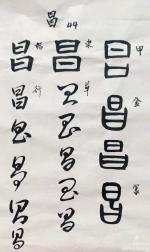 昌 44
甲 昌 金 昌 昌 篆 昌
隶 昌 草 昌 昌 昌 昌 昌
楷 昌 行 昌 昌 昌 昌 昌